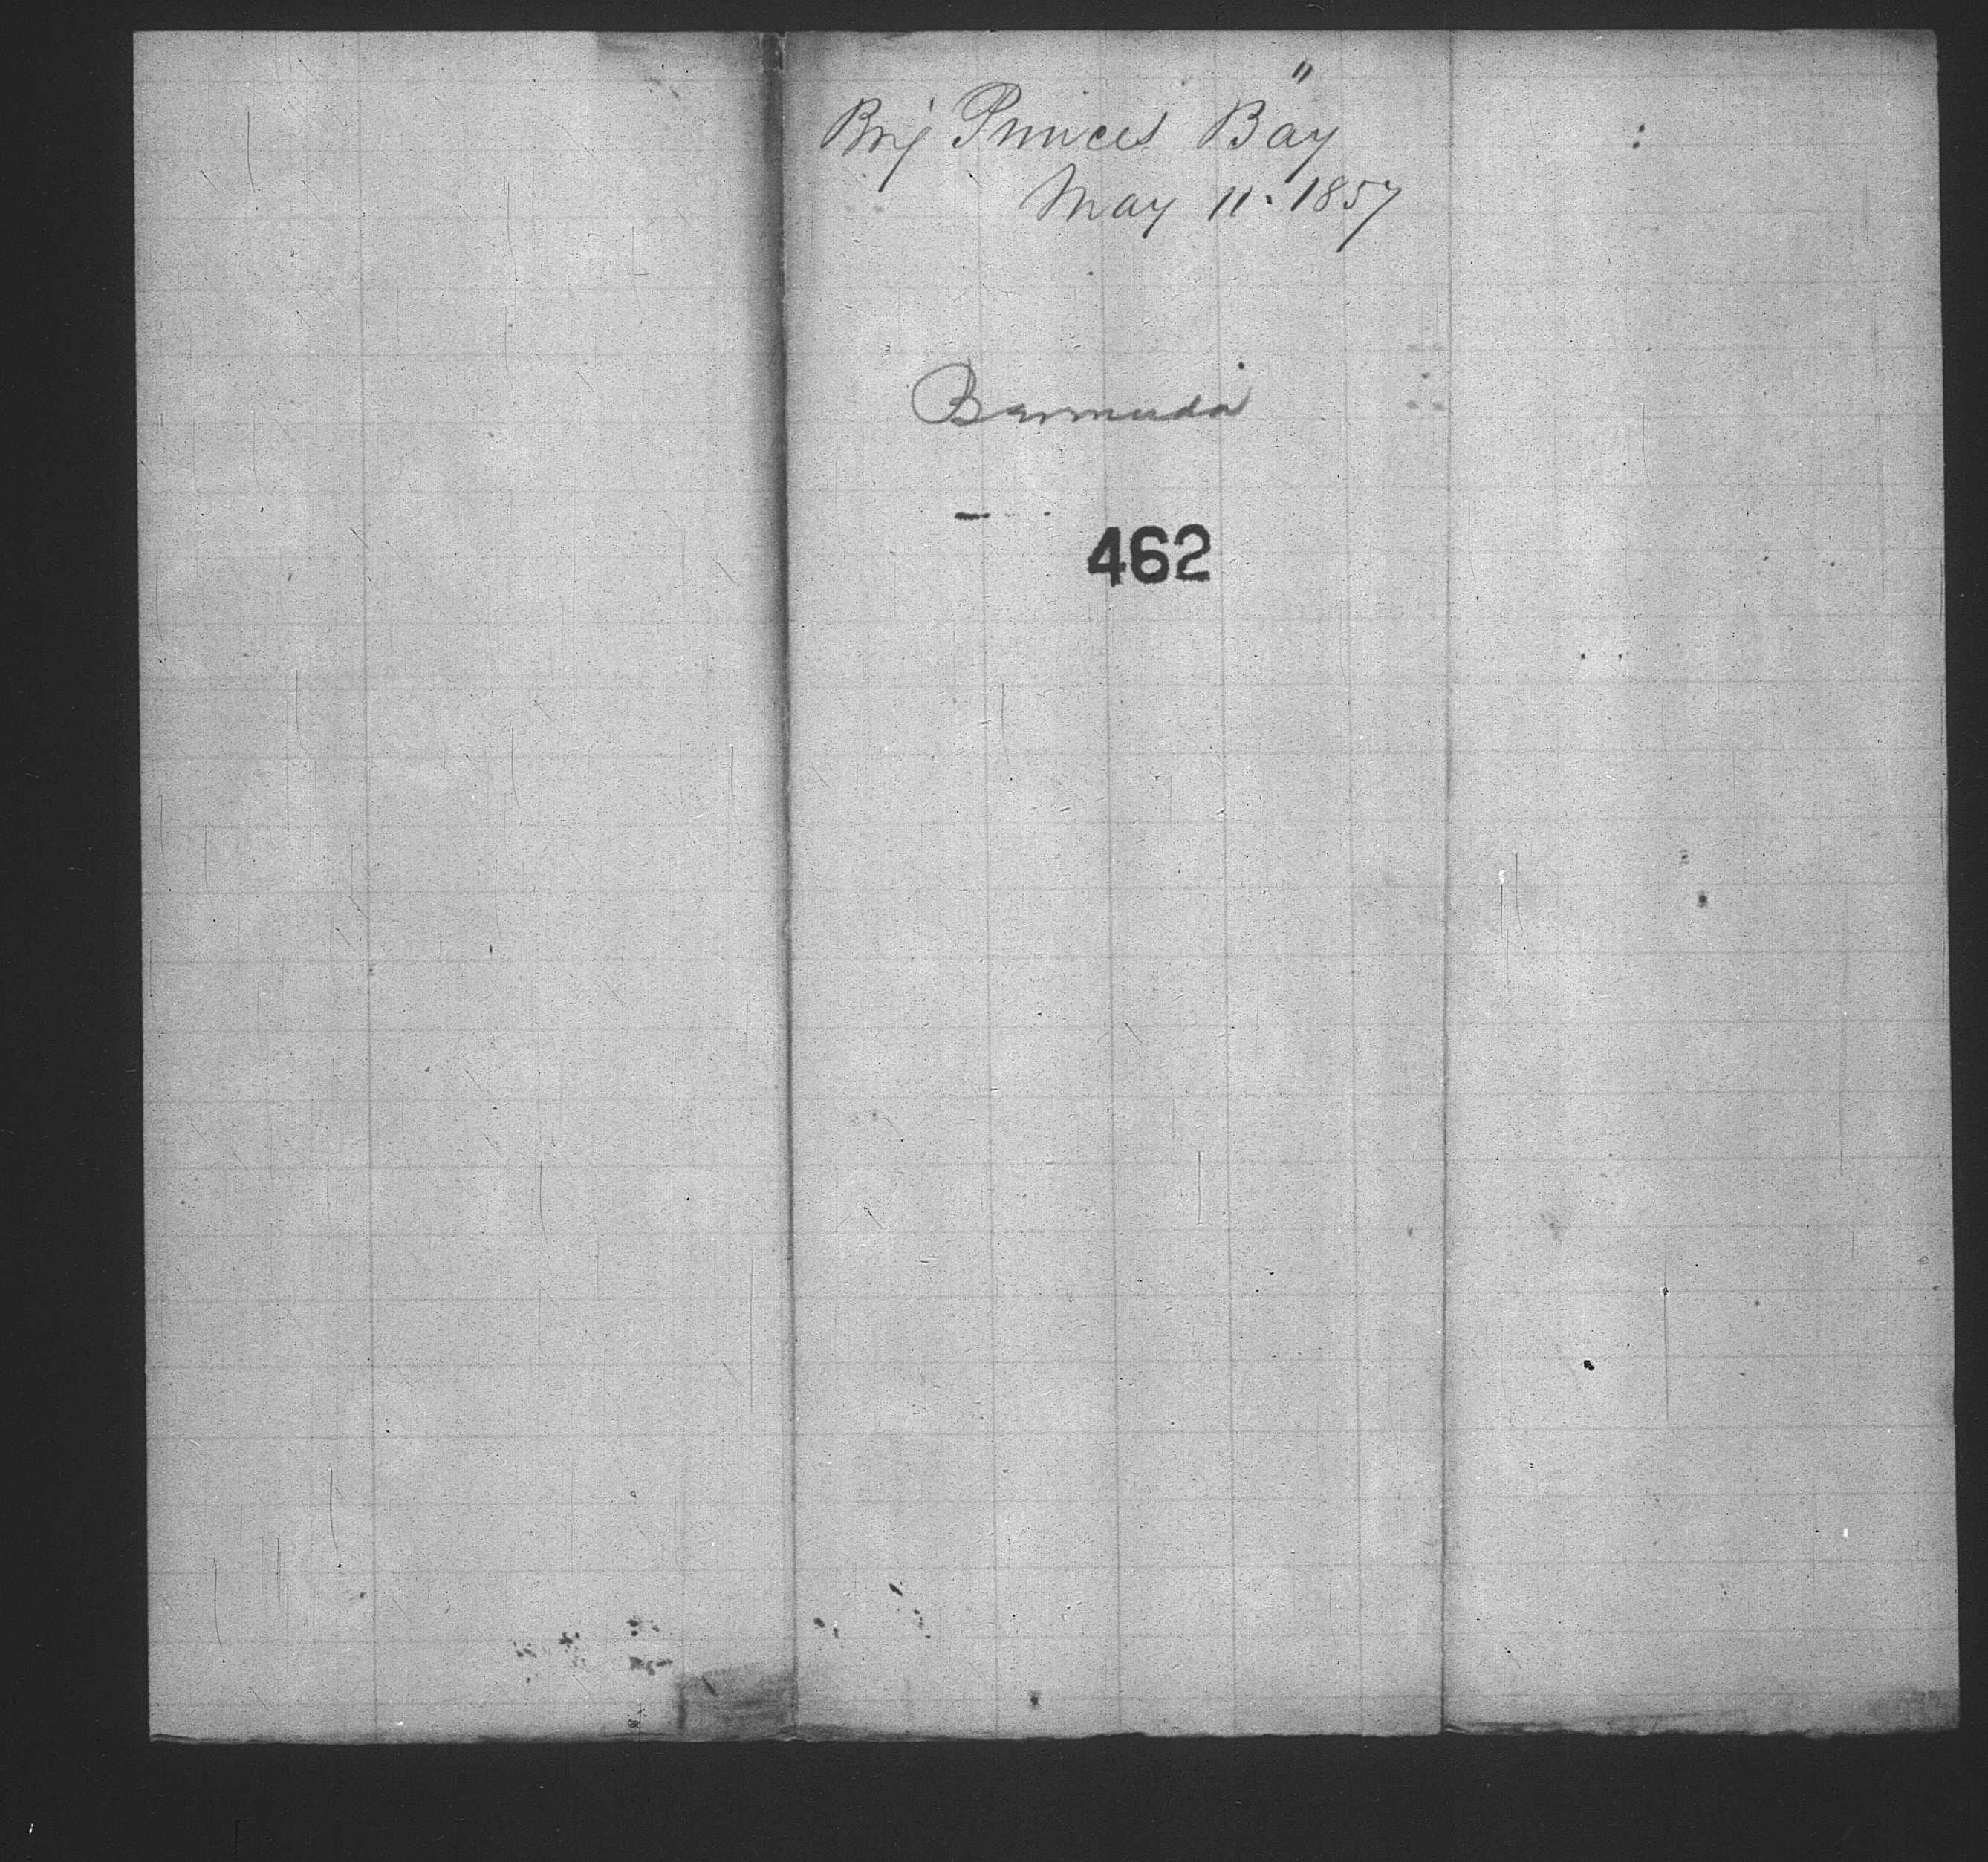 Brig Princes' Bay"
May 11. 1857
Barmuda
462